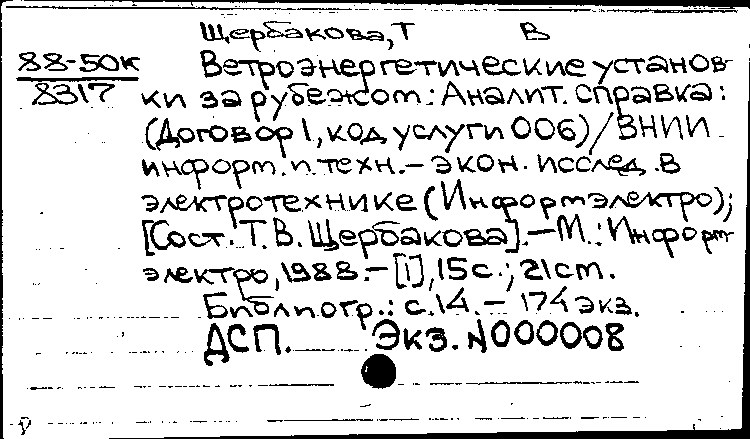 Щербакова, Т В
88-50к Ветроэнергетические установ-
8317 ки за рубежом: Аналит. справка:
(Договор 1, код услуги 006)/ВНИИ
информ. и техн.-экон. исслед. в
электротехнике (Информэлектро);
[Сост. Т.В. Щербакова].-М.: Информ-
электро, 1988.-[1], 15с.; 21см.
Библиогр.: с.14.- 174 экз.
ДСП. Экз. N000008